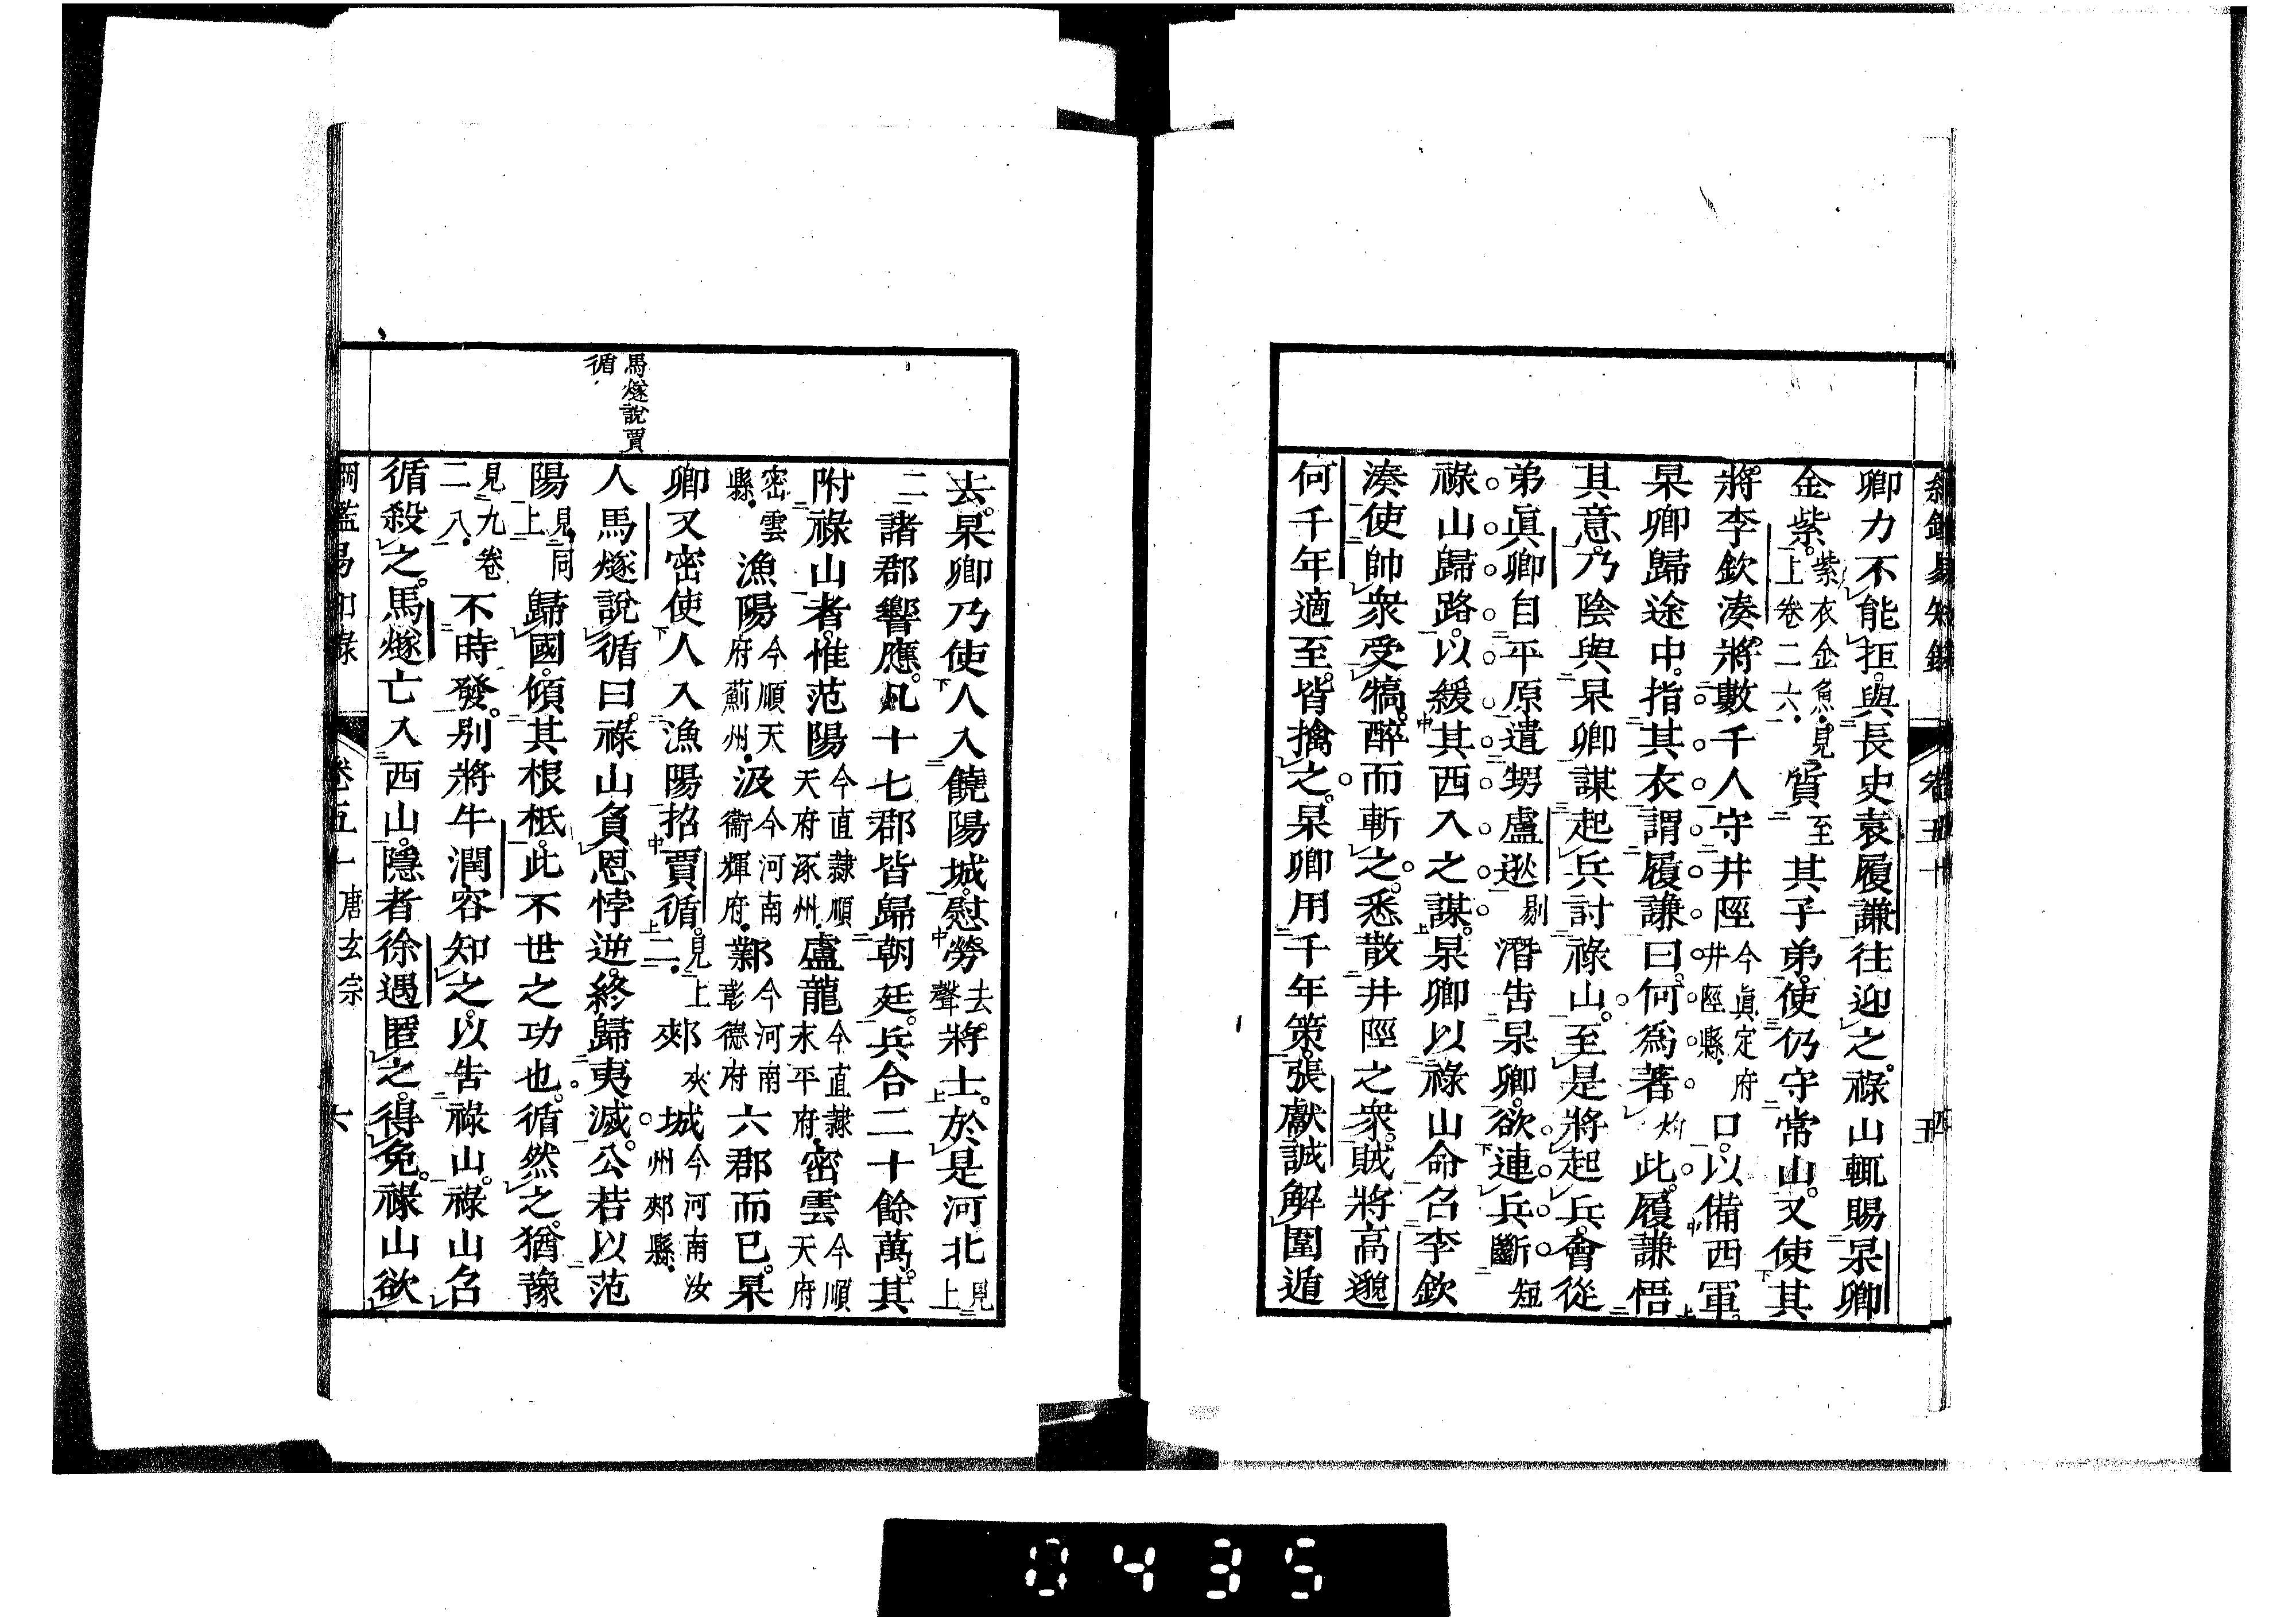 卿力不能拒與長史袁履謙往迎之祿山輒賜杲卿
金紫紫衣金魚見上卷二六質至其子弟使仍守常山又使其
將李欽湊將數千人守井陘今眞定府井陘縣口以備西軍
杲卿歸途中指其衣謂履謙曰何爲著灼此履謙悟
其意乃陰與杲卿謀起兵討祿山至是將起兵會從
弟眞卿自平原遣甥盧逖剔潛告杲卿欲連兵斷短
祿山歸路以緩其西入之謀杲卿以祿山命召李欽
湊使帥衆受犒醉而斬之悉散井陘之衆賊將高邈
何千年適至皆擒之杲卿用千年策張獻誠解圍遁
去杲卿乃使人入饒陽城慰勞去聲將士於是河北見上
二諸郡響應凡十七郡皆歸朝廷兵合二十餘萬其
附祿山者惟范陽今直隸順天府涿州盧龍今直隸永平府密雲今順天府
密雲縣漁陽今順天府薊州汲今河南衞輝府鄴今河南彰德府六郡而已杲
卿又密使人入漁陽招賈循見上二郟夾城今河南汝州郟縣
人馬燧說循曰祿山負恩悖逆終歸夷滅公若以范
陽見同上歸國傾其根柢此不世之功也循然之猶豫
見九卷二八不時發別將牛潤容知之以告祿山祿山召
循殺之馬燧亡入西山隱者徐遇匿之得免祿山欲
馬燧說賈
循
卷五十 唐玄宗 六
0435